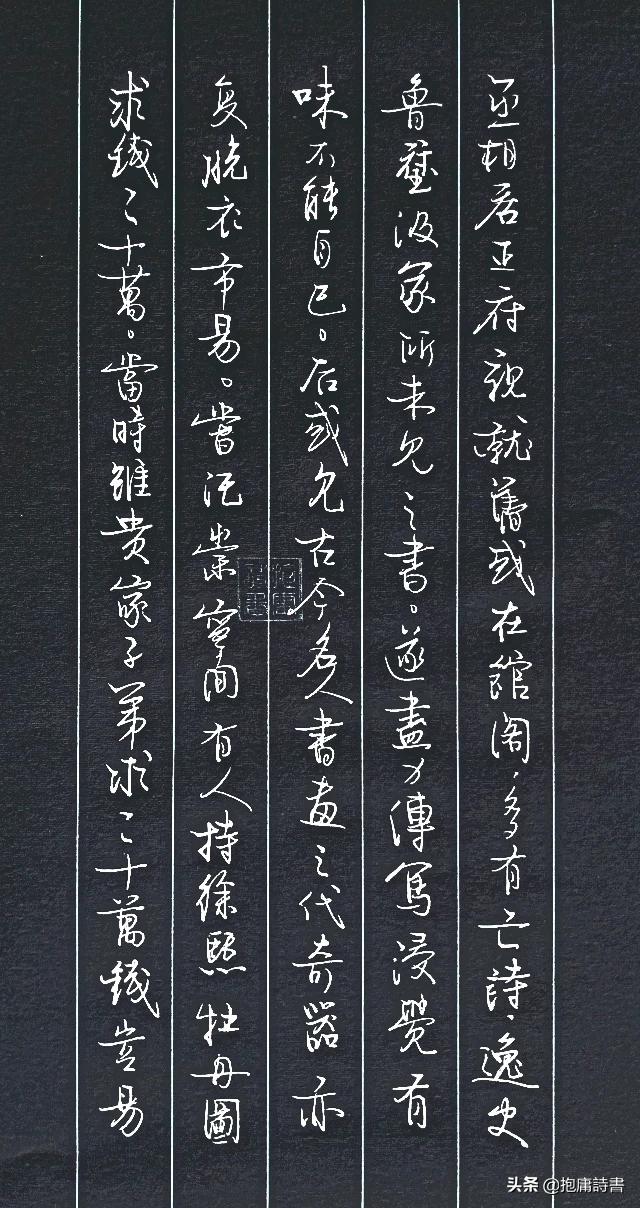 丞相居正府親就舊或在館阁，多有亡詩，逸史
魯壁汲冢所未見之書。遂盡力傳寫浸覺有
味不能自已。后或見古今名人書畫三代奇器亦
复脱衣市易。嘗記崇寧間有人持徐熙牡丹圖
求錢二十萬。當時雖貴家子弟求二十萬錢豈易
头条 @抱庸詩書